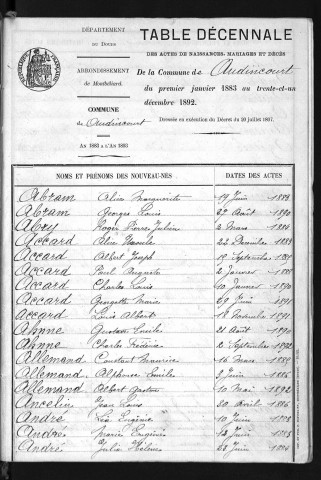 DÉPARTEMENT
DU DOUBS
ARRONDISSEMENT
de Montbéliard
COMMUNE
de Audincourt
AN 1883 A L'AN 1893
TABLE DÉCENNALE
DES ACTES DE NAISSANCES, MARIAGES ET DÉCÈS
De la Commune de Audincourt
du premier janvier 1883 au trente-et-un
décembre 1892.
Dressée en exécution du Décret du 20 juillet 1807.
NOMS ET PRÉNOMS DES NOUVEAU-NÉS DATES DES ACTES
Abram Alice Marguerite 19 Juin
Abram Georges Louis 27 Août 1890
Abry Roger Pierre Julien 2 Mars
Accard Alice 22 Décembre
Accard Albert Joseph 19 Septembre
Accard Paul Auguste 2 Janvier
Accard Charles Louis 10 Janvier 1890
Accard Georgette Marie Juin 1891
Accard Louis Albert 18 Novembre
Ahnne Gustave Emile 21 Août
Ahnne Charles Frédéric 2 Septembre 1892
Allemand Constant Maurice 16 Mars
Allemand Alphonse Emile 9 Juin 1886
Allemand Albert Gaston 10 Mai 1892
Ancelin Jean Louis 30 Avril 1886
André Léa Eugénie 10 Juin
André Marie Eugénie Juin
André Julie Hélène Juin